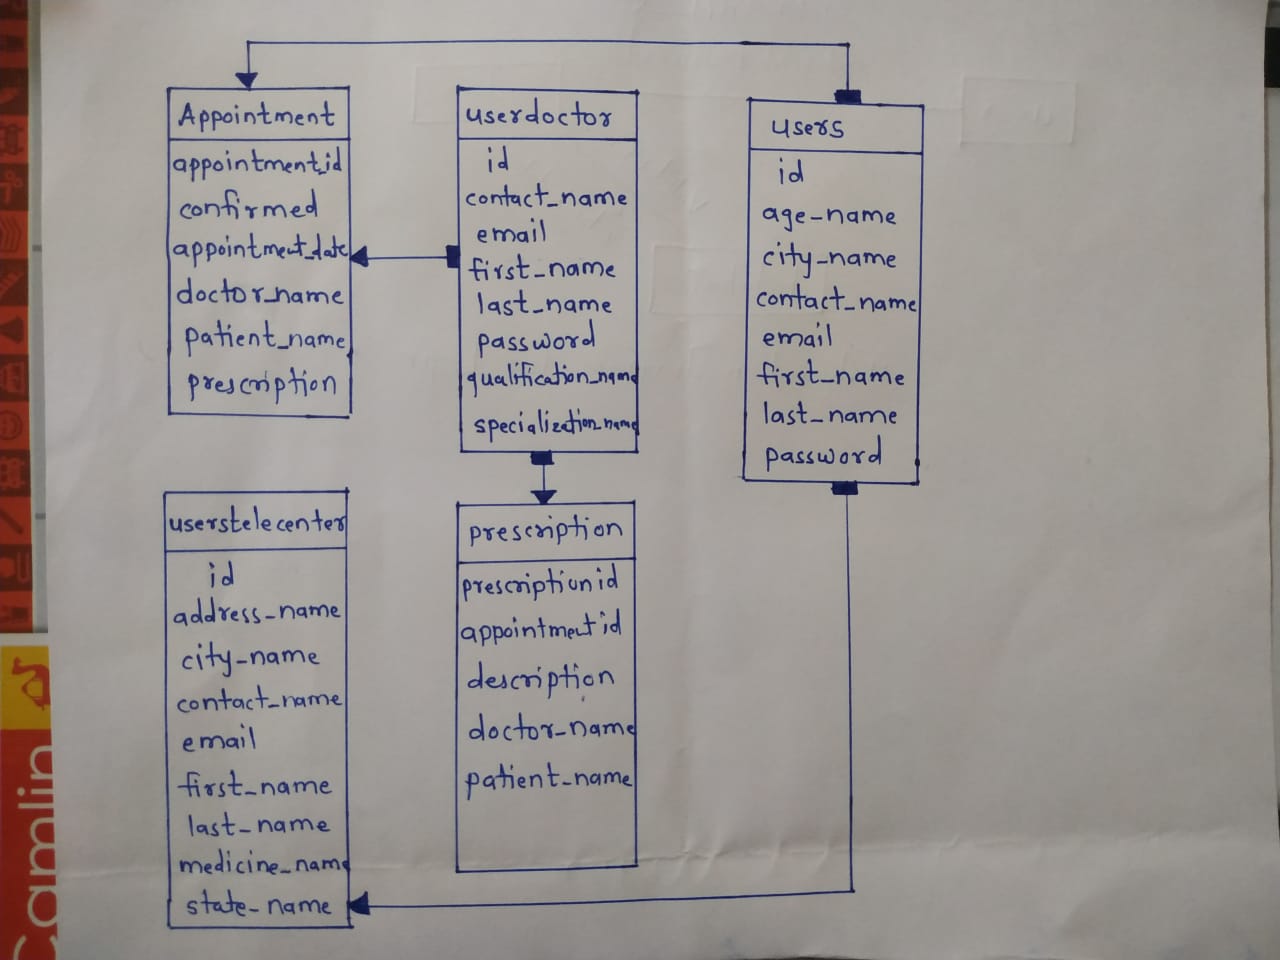 Appointment
appointment_id
confirmed
appointment_date
doctor_name
patient_name
prescription
userdoctor
id
contact_name
email
first_name
last_name
password
qualification_name
specialization_name
users
id
age_name
city_name
contact_name
email
first_name
last_name
password
userstelecenter
id
address_name
city_name
contact_name
email
first_name
last_name
medicine_name
state_name
prescription
prescriptionid
appointmentid
description
doctor_name
patient_name
Camlin